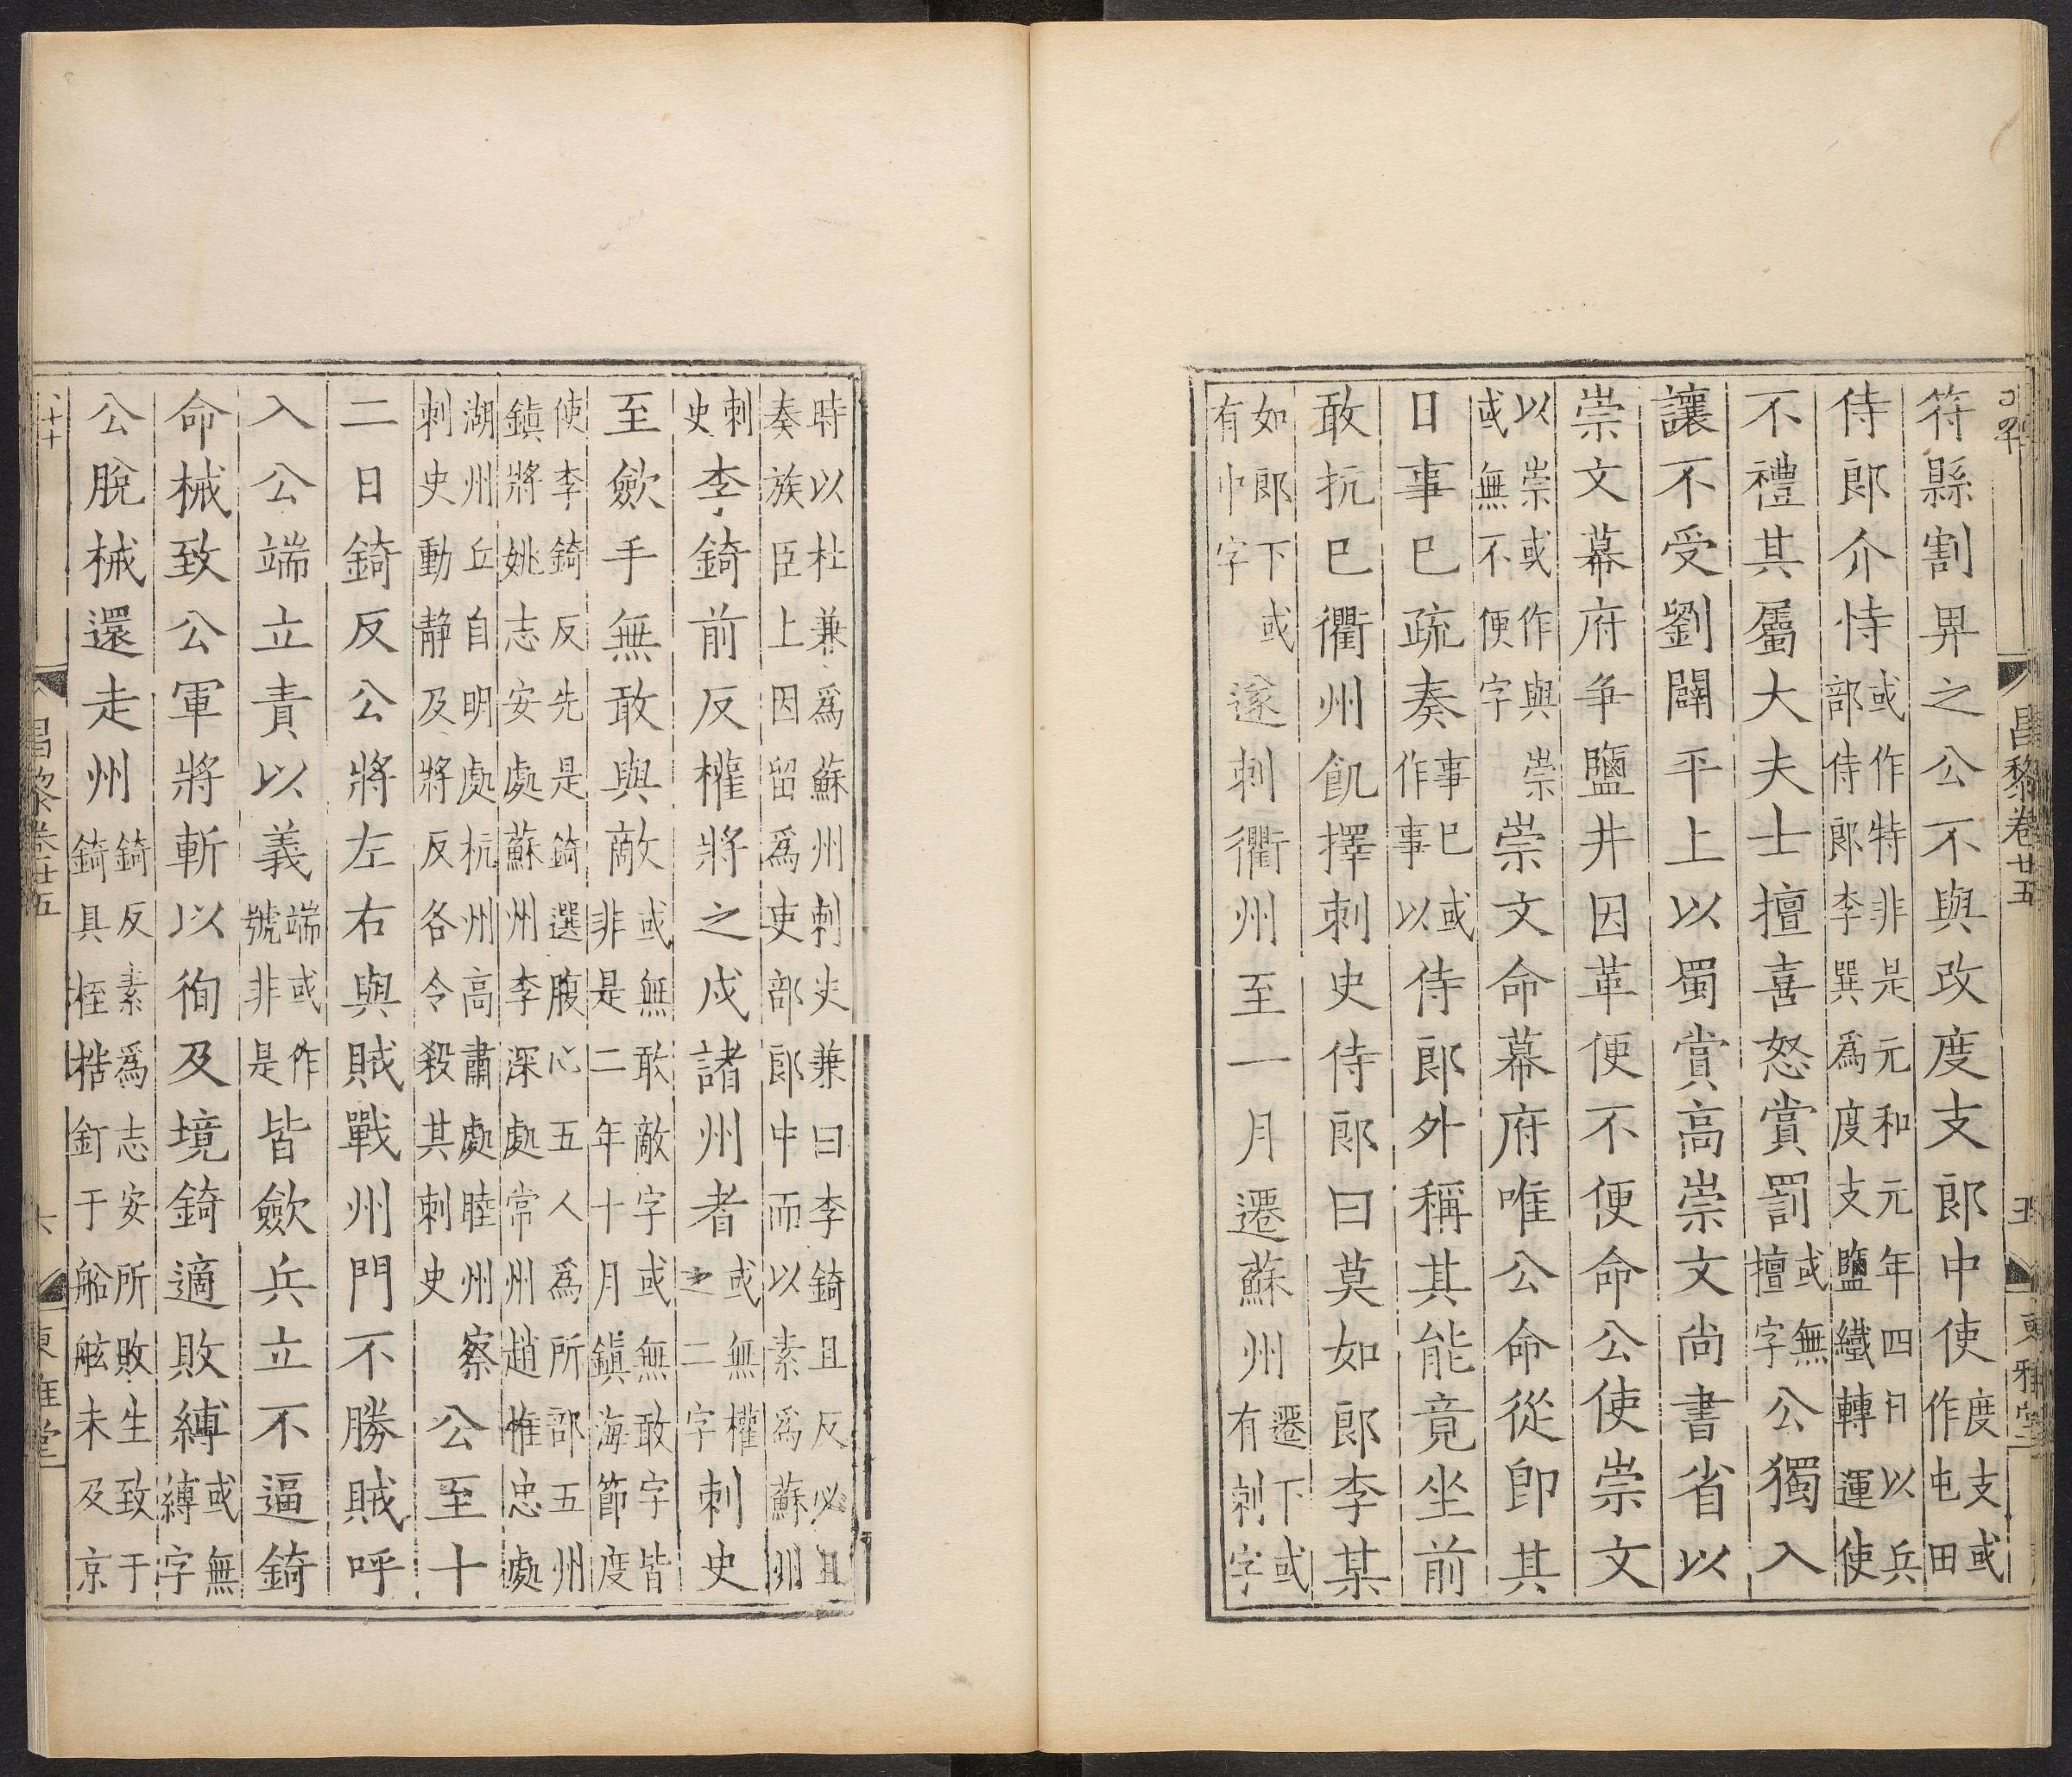 昌黎卷廿五　五　東雅堂
符縣割畀之公不與改度支郎中使度支或作屯田
侍郎介恃或作特非是元和元年四月以兵部侍郎李巽爲度支鹽鐵轉運使
不禮其屬大夫士擅喜怒賞罰或無擅字公獨入
讓不受劉闢平上以蜀賞高崇文尚書省以
崇文幕府爭鹽井因革便不便命公使崇文
以崇或作與崇或無不便字崇文命幕府唯公命從即其
日事已疏奏事已或作事以侍郎外稱其能竟坐前
敢抗已衢州飢擇刺史侍郎曰莫如郎李某
如郎下或有中字遂刺衢州至一月遷蘇州遷下或有刺字
時以杜兼爲蘇州刺史兼曰李錡且反必且奏族臣上因留爲吏部郎中而以素爲蘇州
刺史李錡前反權將之戍諸州者或無權之二字刺史
至斂手無敢與敵或無敢敵字或無敢字皆非是二年十月鎮海節度
使李錡反先是錡選腹心五人爲所部五州鎮將姚志安處蘇州李深處常州趙惟忠處
湖州丘自明處杭州高肅處睦州察刺史動静及將反各令殺其刺史公至十
二日錡反公將左右與賊戰州門不勝賊呼
入公端立責以義端或作號非是皆斂兵立不逼錡
命械致公軍將斬以徇及境錡適敗縛或無縛字
公脫械還走州錡反素爲志安所敗生致于錡具桎梏釘于船舷未及京
昌黎卷廿五　六　東雅堂